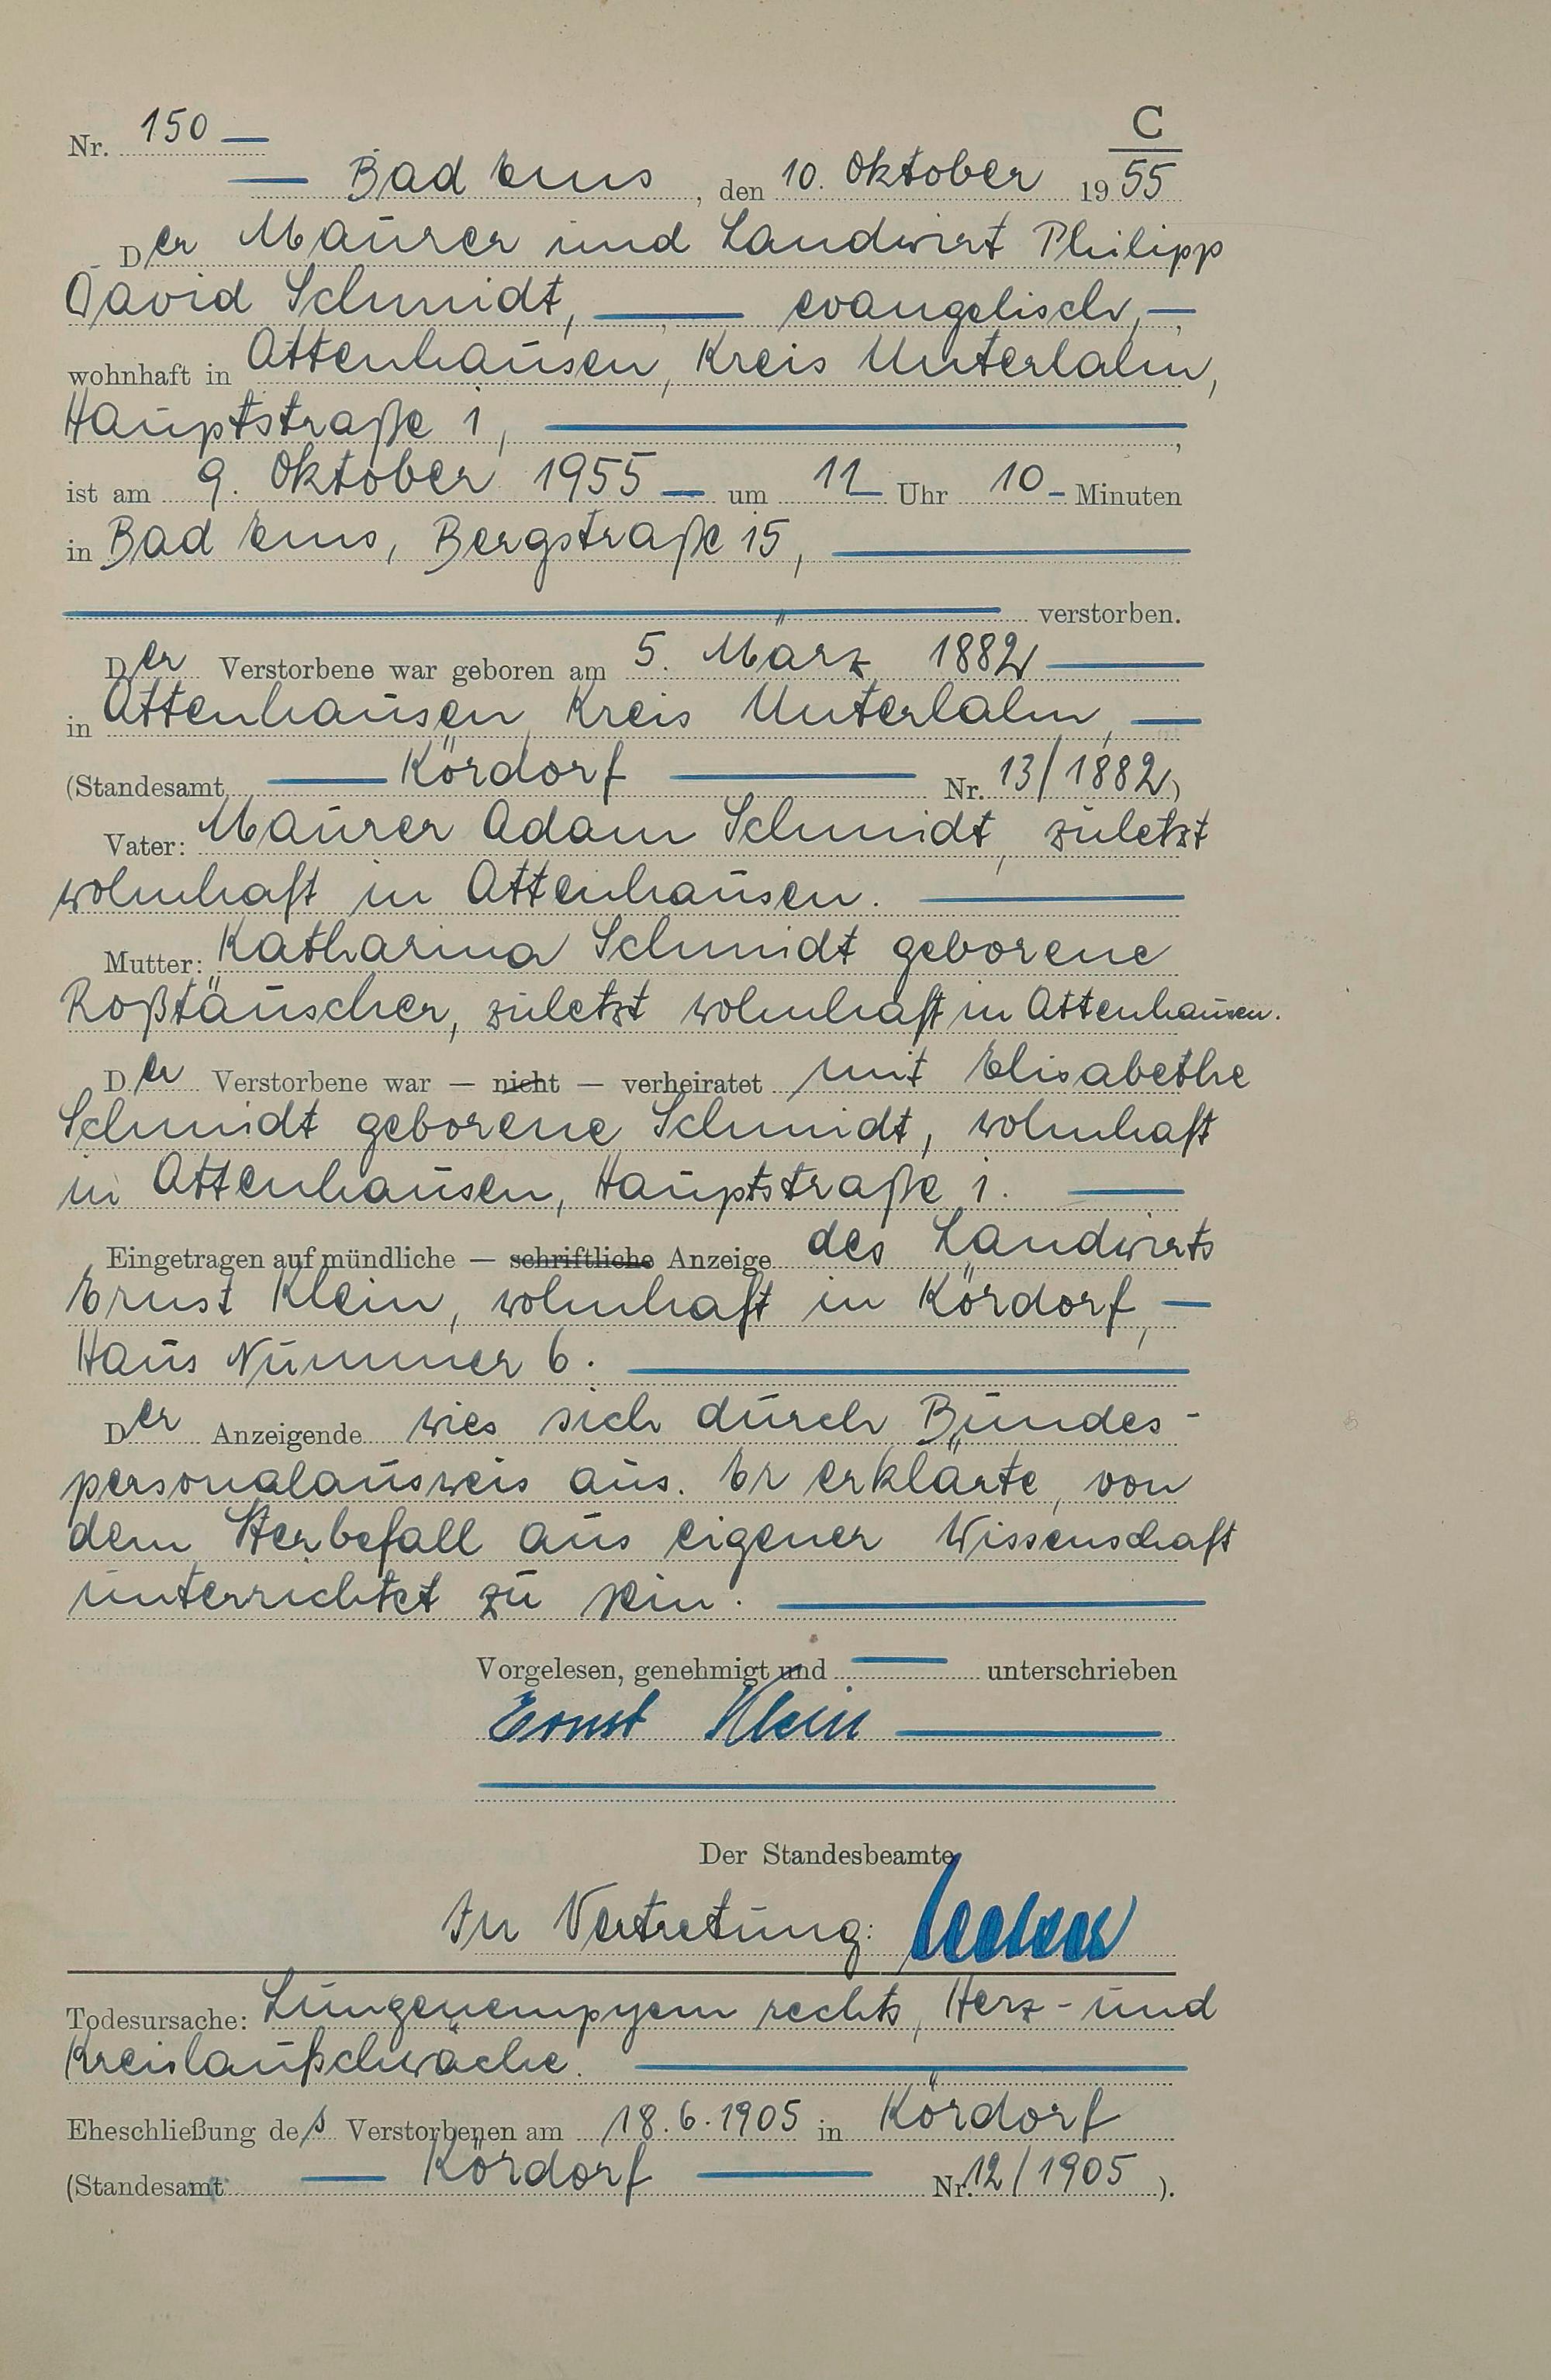 C
Nr. 150
Bad Ems, den 10. Oktober 1955
Der Maurer und Landwirt Philipp
David Schmidt, evangelisch,
wohnhaft in Attenhausen, Kreis Unterlahn,
Hauptstraße 1,
ist am 9. Oktober 1955 um 11 Uhr 10 Minuten
in Bad Ems, Bergstraße 15,
verstorben.
Der Verstorbene war geboren am 5. März 1882
in Attenhausen, Kreis Unterlahn,
(Standesamt Kördorf Nr. 13/1882)
Vater: Maurer Adam Schmidt, zuletzt
wohnhaft in Attenhausen.
Mutter: Katharina Schmidt geborene
Roßtäuscher, zuletzt wohnhaft in Attenhausen.
Der Verstorbene war — nicht — verheiratet mit Elisabethe
Schmidt geborene Schmidt, wohnhaft
in Attenhausen, Hauptstraße 1.
Eingetragen auf mündliche — schriftliche Anzeige des Landwirts
Ernst Klein, wohnhaft in Kördorf,
Haus Nummer 6.
Der Anzeigende wies sich durch Bundes-
personalausweis aus. Er erklärte, von
dem Sterbefall aus eigener Wissenschaft
unterrichtet zu sein.
Vorgelesen, genehmigt und unterschrieben
Ernst Klein
Der Standesbeamte
In Vertretung:
Todesursache: Lungenempyem rechts, Herz- und
Kreislaufschwäche.
Eheschließung des Verstorbenen am 18.6.1905 in Kördorf
(Standesamt Kördorf Nr. 12/1905).